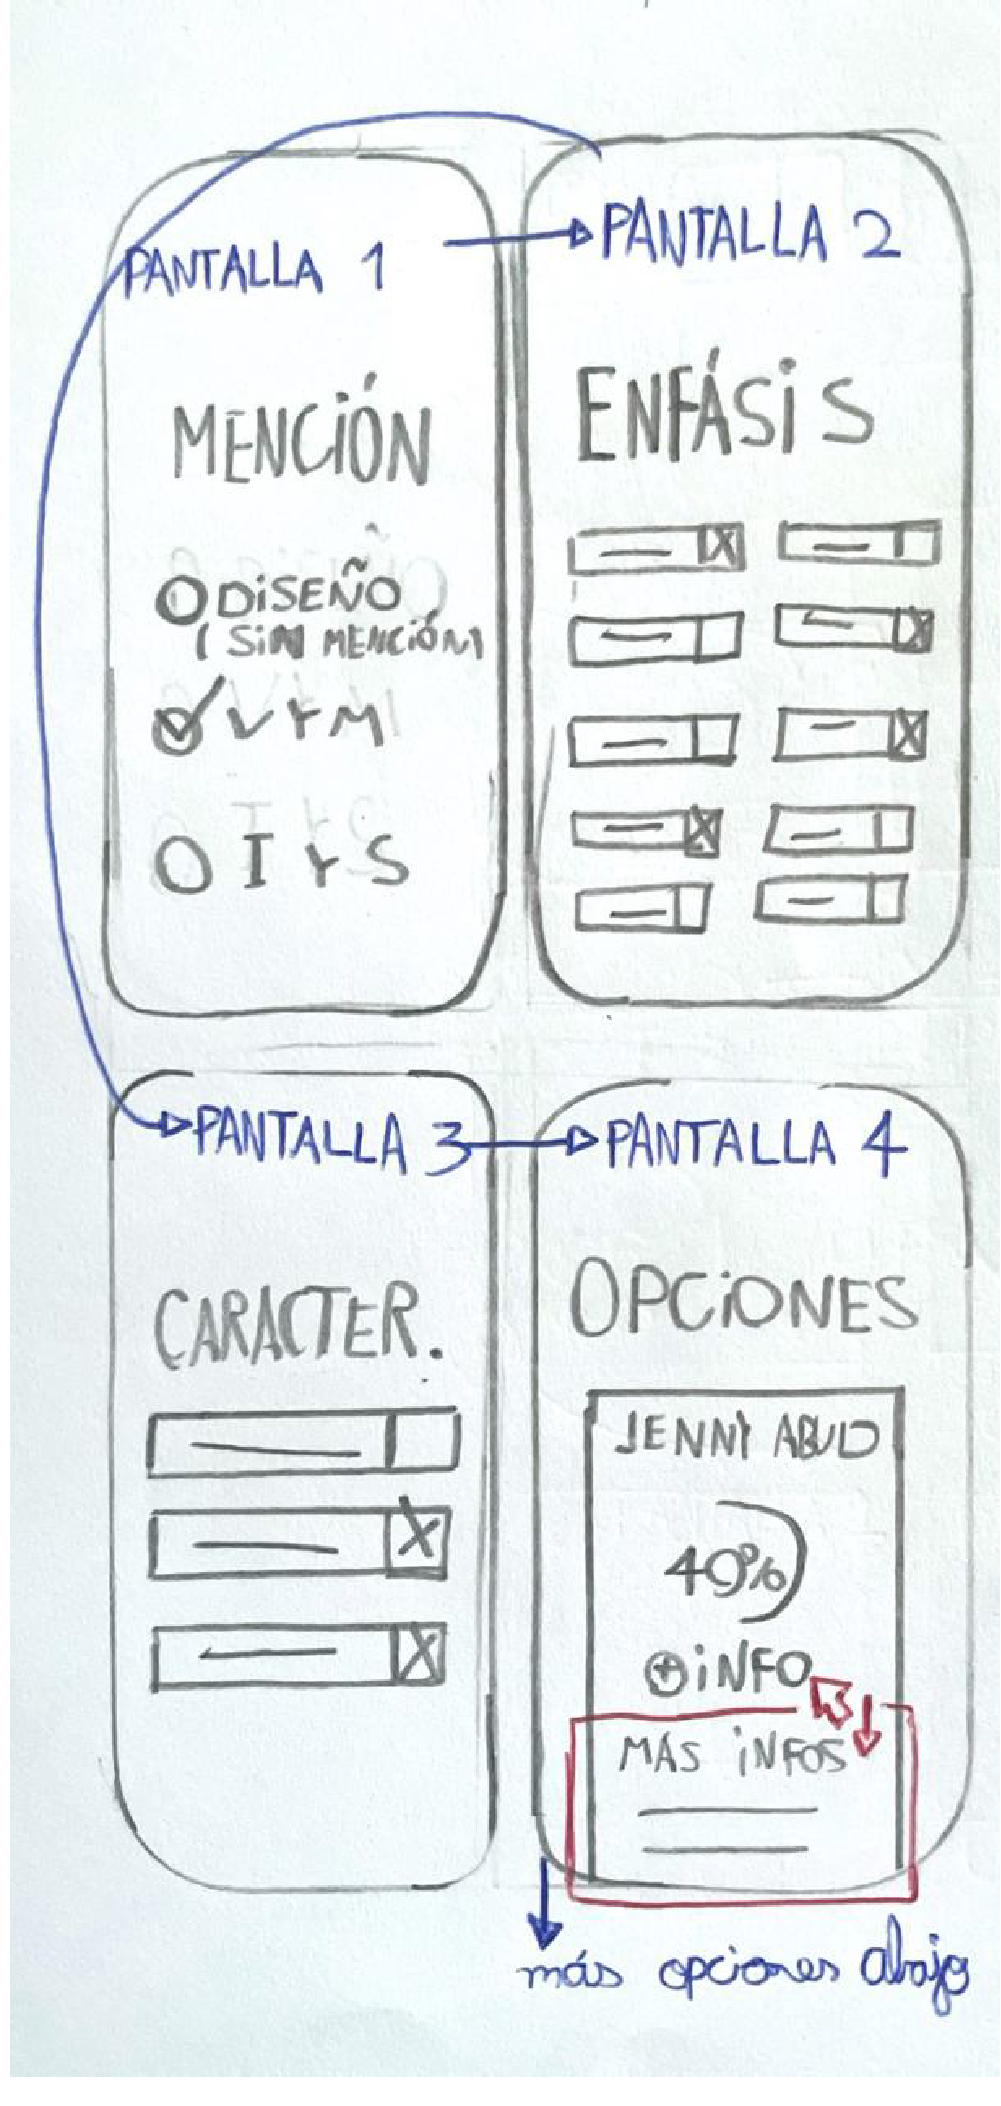 PANTALLA 1
MENCIÓN
DISEÑO
(SIN MENCIÓN)
VYM
IYS
PANTALLA 2
ENFÁSIS
PANTALLA 3
CARACTER.
PANTALLA 4
OPCIONES
JENNY ABUD
40%
INFO
MÁS INFOS
más opciones abajo